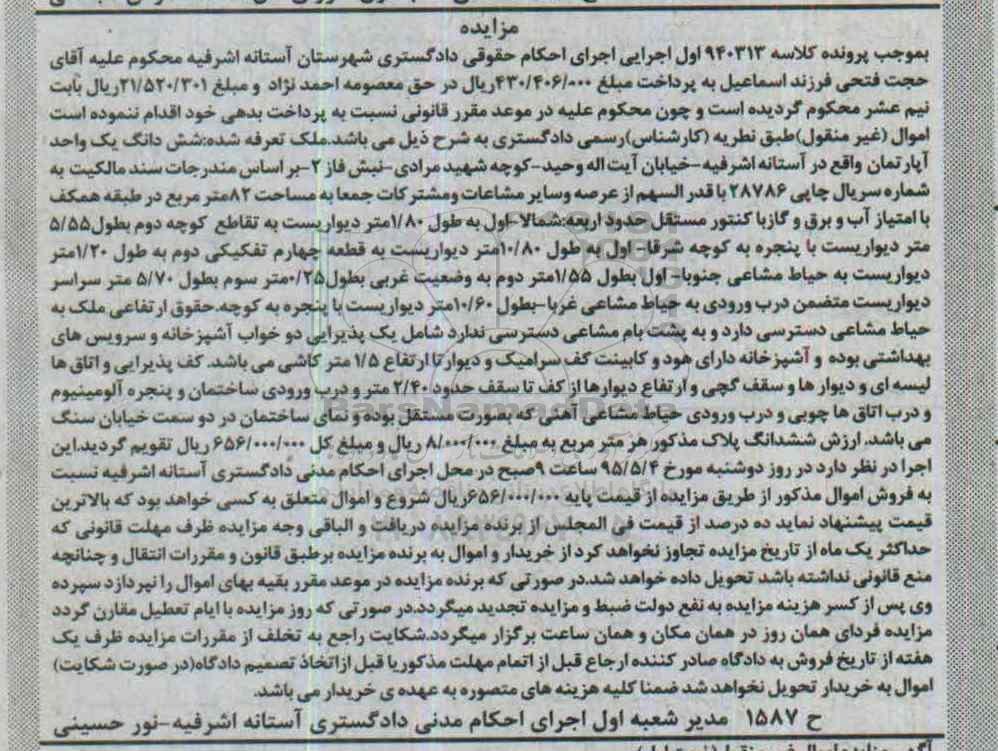 مزایده
بموجب پرونده کلاسه ۹۴۰۳۱۳ اول اجرایی اجرای احکام حقوقی دادگستری شهرستان آستانه اشرفیه محکوم علیه آقای
حجت فتحی فرزند اسماعیل به پرداخت مبلغ ۴۳۰/۴۰۶/۰۰۰ریال در حق معصومه احمد نژاد و مبلغ ۲۱/۵۲۰/۳۰۱ریال بابت
نیم عشر محکوم گردیده است و چون محکوم علیه در موعد مقرر قانونی نسبت به پرداخت بدهی خود اقدام ننموده است
اموال (غیر منقول)طبق نظریه (کارشناس)رسمی دادگستری به شرح ذیل می باشد.ملک تعرفه شده:شش دانگ یک واحد
آپارتمان واقع در آستانه اشرفیه-خیابان آیت اله وحید-کوچه شهید مرادی-نبش فاز ۲-بر اساس مندرجات سند مالکیت به
شماره سریال چاپی ۲۸۷۸۶ با قدر السهم از عرصه وسایر مشاعات ومشترکات جمعا به مساحت ۸۲متر مربع در طبقه همکف
با امتیاز آب و برق و گازبا کنتور مستقل حدود اربعه:شمالا-اول به طول ۱/۸۰متر دیواریست به تقاطع کوچه دوم بطول۵/۵۵
متر دیواریست با پنجره به کوچه شرقا- اول به طول ۱۰/۸۰متر دیواریست به قطعه چهارم تفکیکی دوم به طول ۱/۲۰متر
دیواریست به حیاط مشاعی جنوبا-اول بطول ۱/۵۵متر دوم به وضعیت غربی بطول۰/۲۵متر سوم بطول ۵/۷۰ متر سراسر
دیواریست متضمن درب ورودی به حیاط مشاعی غربا-بطول ۱۰/۶۰متر دیواریست با پنجره به کوچه.حقوق ارتفاعی ملک به
حیاط مشاعی دسترسی دارد و به پشت بام مشاعی دسترسی ندارد شامل یک پذیرایی دو خواب آشپزخانه و سرویس های
بهداشتی بوده و آشپزخانه دارای هود و کابینت کف سرامیک و دیوار تا ارتفاع ۱/۵ متر کاشی می باشد. کف پذیرایی و اتاق ها
لیسه ای و دیوار ها و سقف گچی و ارتفاع دیوارها از کف تا سقف حدود ۲/۴۰ متر و درب ورودی ساختمان و پنجره آلومینیوم
و درب اتاق ها چوبی و درب ورودی حیاط مشاعی آهنی که بصورت مستقل بوده و نمای ساختمان در دو سمت خیابان سنگ
می باشد. ارزش ششدانگ پلاک مذکور هر متر مربع به مبلغ ۸/۰۰۰/۰۰۰ ریال و مبلغ کل ۶۵۶/۰۰۰/۰۰۰ ریال تقویم گردید.این
اجرا در نظر دارد در روز دوشنبه مورخ ۹۵/۵/۴ ساعت ۹صبح در محل اجرای احکام مدنی دادگستری آستانه اشرفیه نسبت
به فروش اموال مذکور از طریق مزایده از قیمت پایه ۶۵۶/۰۰۰/۰۰۰ریال شروع و اموال متعلق به کسی خواهد بود که بالاترین
قیمت پیشنهاد نماید ده درصد از قیمت فی المجلس از برنده مزایده دریافت و الباقی وجه مزایده ظرف مهلت قانونی که
حداکثر یک ماه از تاریخ مزایده تجاوز نخواهد کرد از خریدار و اموال به برنده مزایده برطبق قانون و مقررات انتقال و چنانچه
منع قانونی نداشته باشد تحویل داده خواهد شد.در صورتی که برنده مزایده در موعد مقرر بقیه بهای اموال را نپردازد سپرده
وی پس از کسر هزینه مزایده به نفع دولت ضبط و مزایده تجدید میگردد.در صورتی که روز مزایده با ایام تعطیل مقارن گردد
مزایده فردای همان روز در همان مکان و همان ساعت برگزار میگردد.شکایت راجع به تخلف از مقررات مزایده ظرف یک
هفته از تاریخ فروش به دادگاه صادر کننده ارجاع قبل از اتمام مهلت مذکور یا قبل از اتخاذ تصمیم دادگاه(در صورت شکایت)
اموال به خریدار تحویل نخواهد شد ضمنا کلیه هزینه های متصوره به عهده ی خریدار می باشد.
ح ۱۵۸۷ مدیر شعبه اول اجرای احکام مدنی دادگستری آستانه اشرفیه-نور حسینی